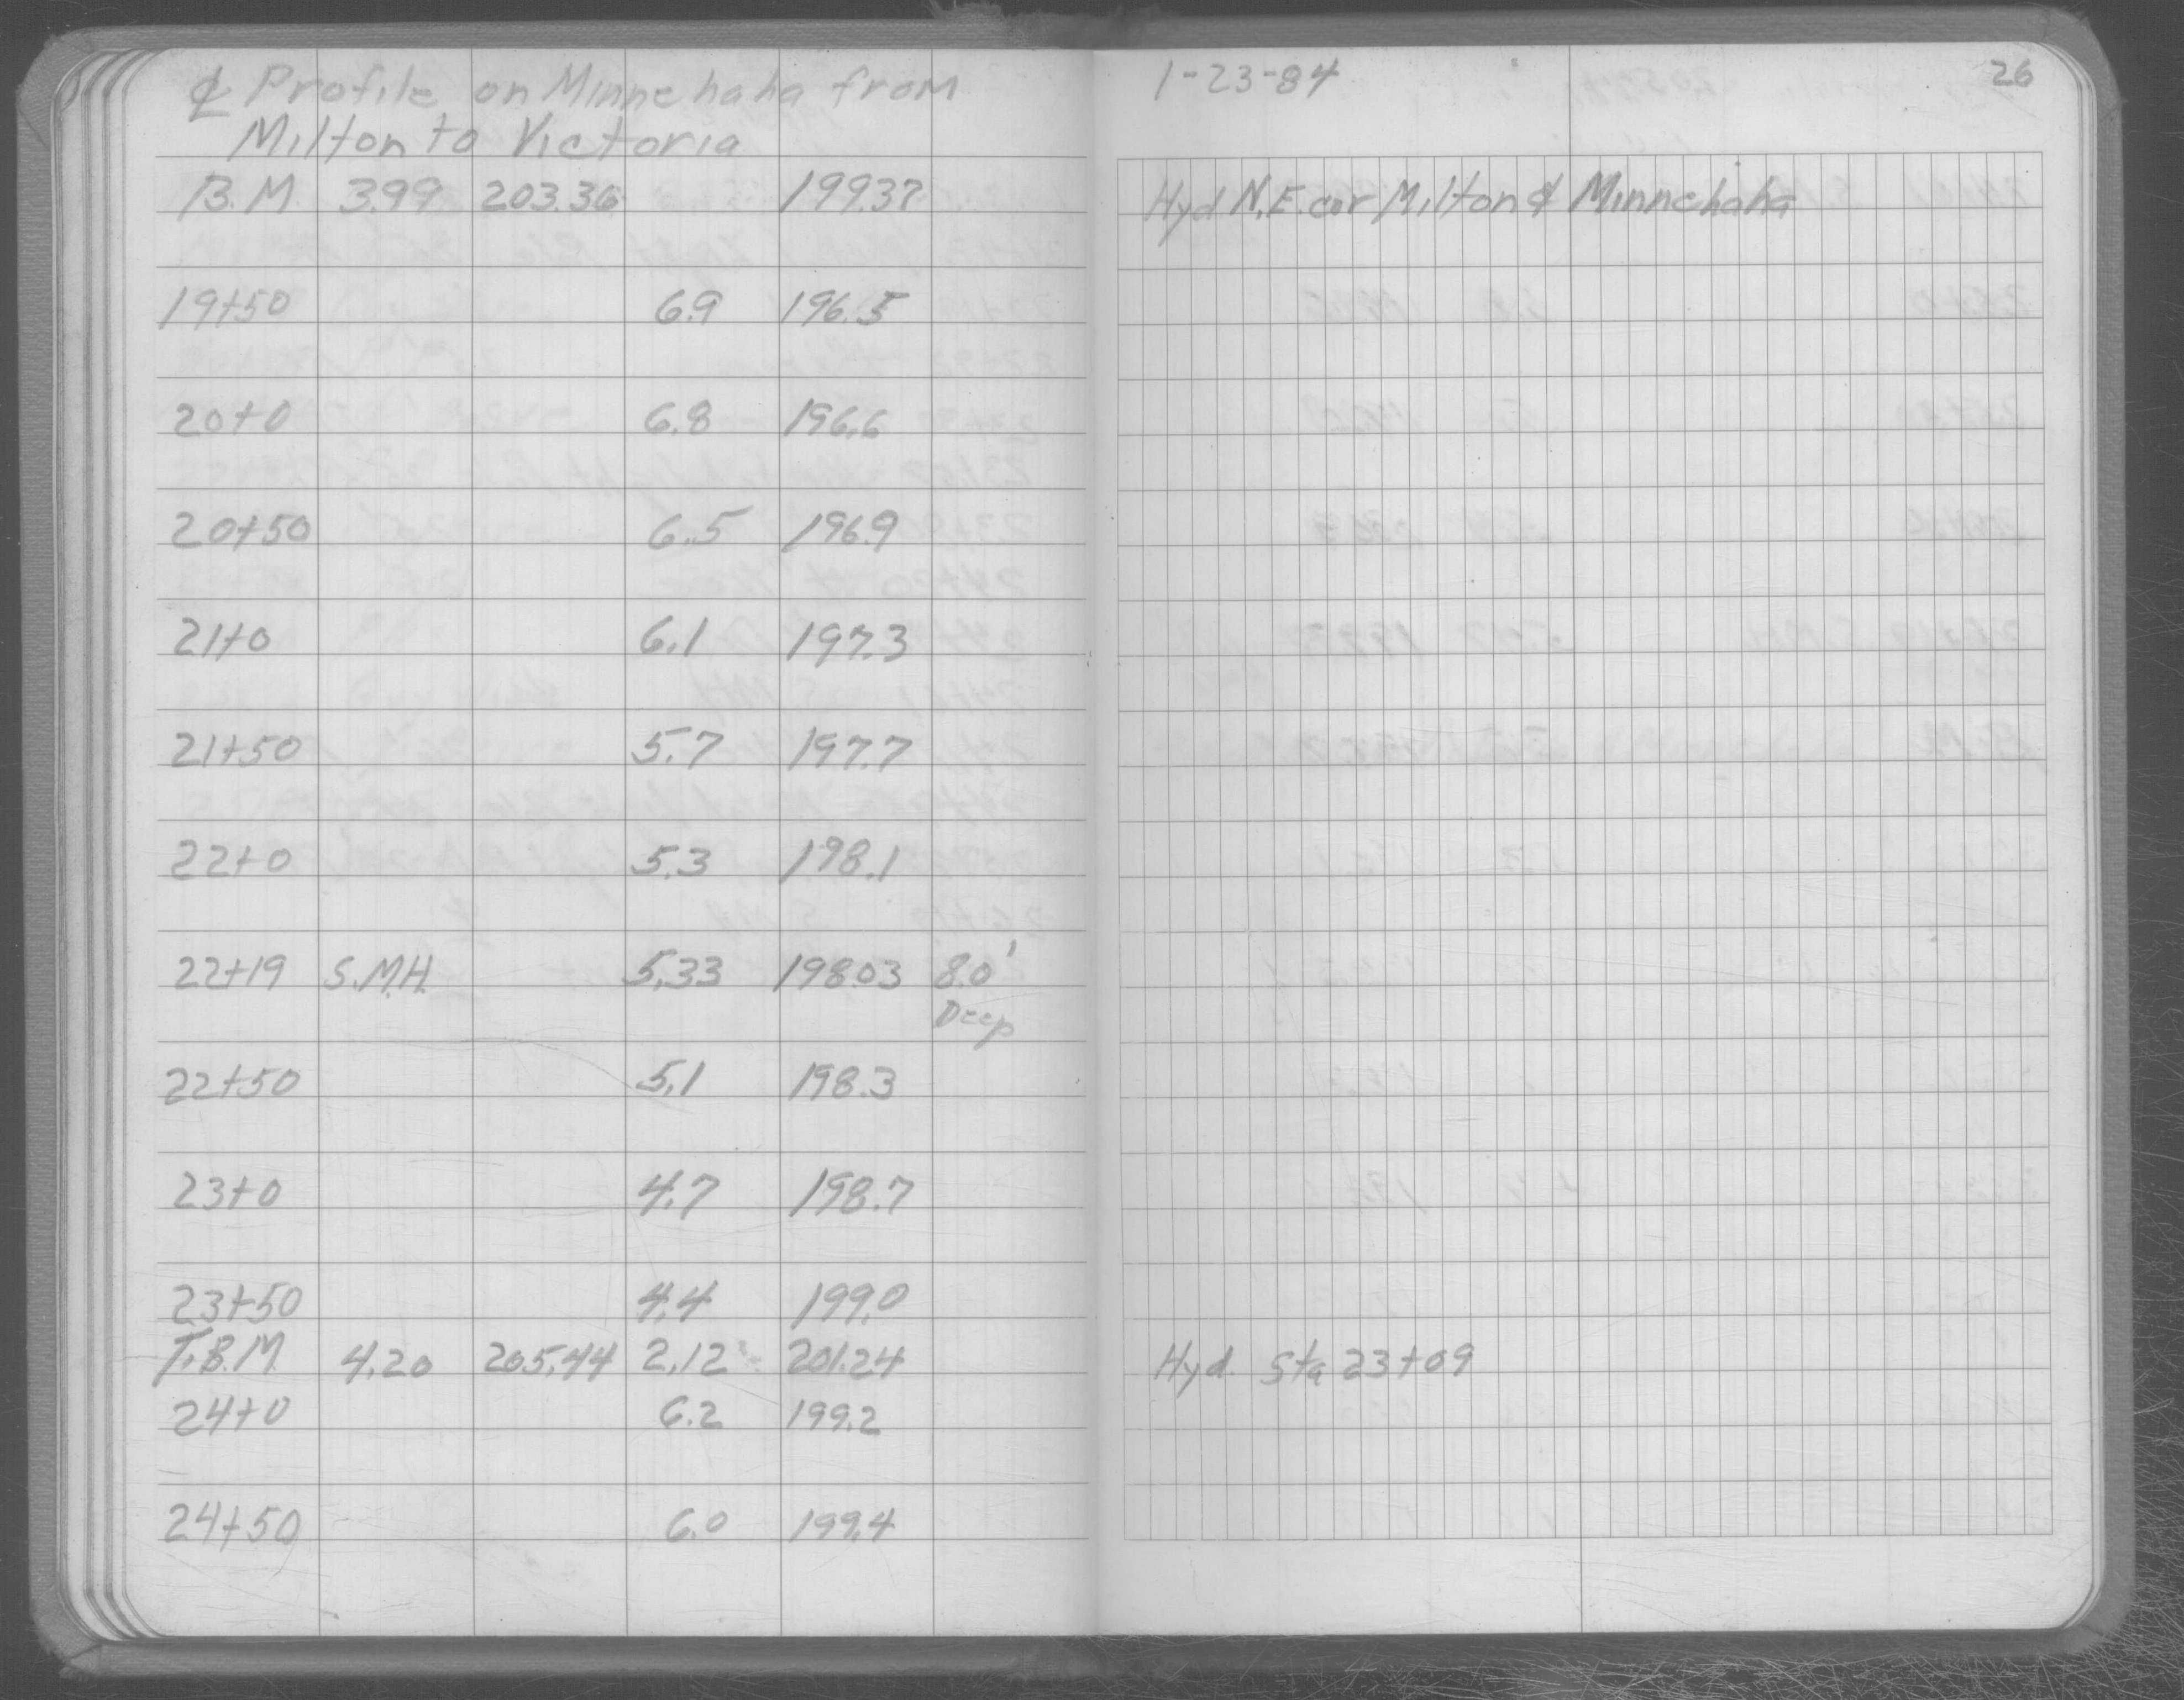 ℄ Profile on Minnehaha from
Milton to Victoria
B.M. 3.99 203.36 199.37
19+50 6.9 196.5
20+0 6.8 196.6
20+50 6.5 196.9
21+0 6.1 197.3
21+50 5.7 197.7
22+0 5.3 198.1
22+19 S.M.H. 5.33 198.03 8.0'
Deep
22+50 5.1 198.3
23+0 4.7 198.7
23+50 4.4 199.0
T.B.M. 4.20 205.44 2.12 201.24
24+0 6.2 199.2
24+50 6.0 199.4
1-23-84 26
Hyd N.E. cor Milton & Minnehaha
Hyd. Sta 23+09